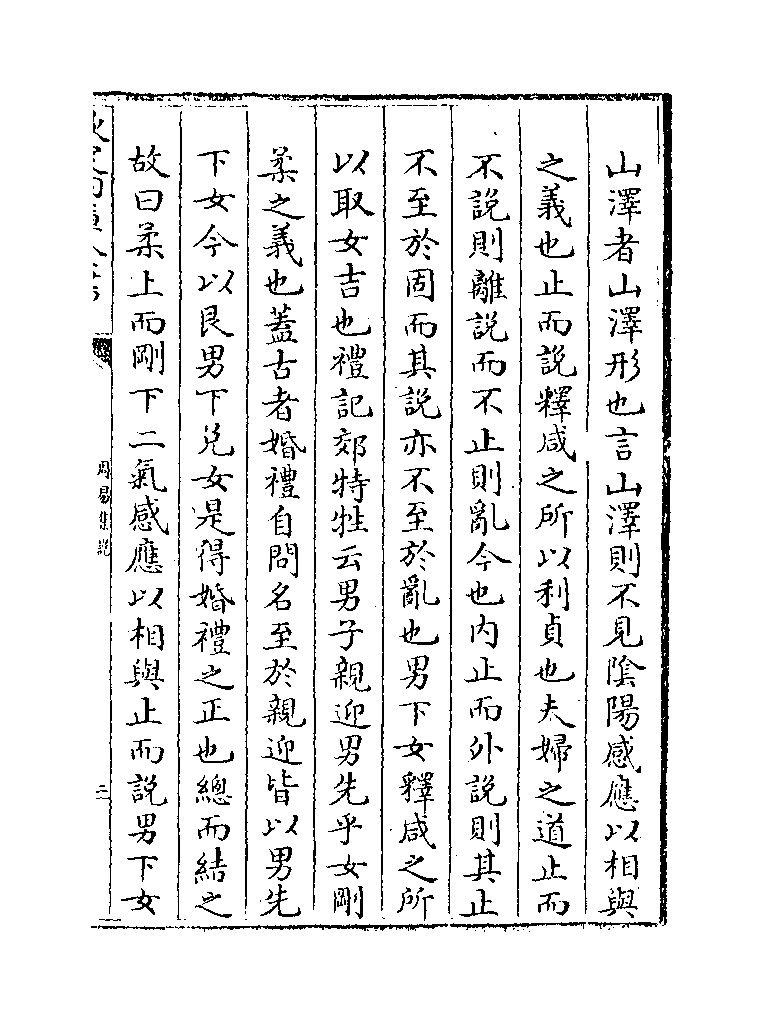 山澤者山澤形也言山澤則不見陰陽感應以相與
之義也止而說釋咸之所以利貞也夫婦之道止而
不說則離說而不止則亂今也内止而外說則其止
不至於固而其說亦不至於亂也男下女釋咸之所
以取女吉也禮記郊特牲云男子親迎男先乎女剛
柔之義也蓋古者婚禮自問名至於親迎皆以男先
下女今以艮男下兌女是得婚禮之正也總而結之
故曰柔上而剛下二氣感應以相與止而說男下女
周易集說
三